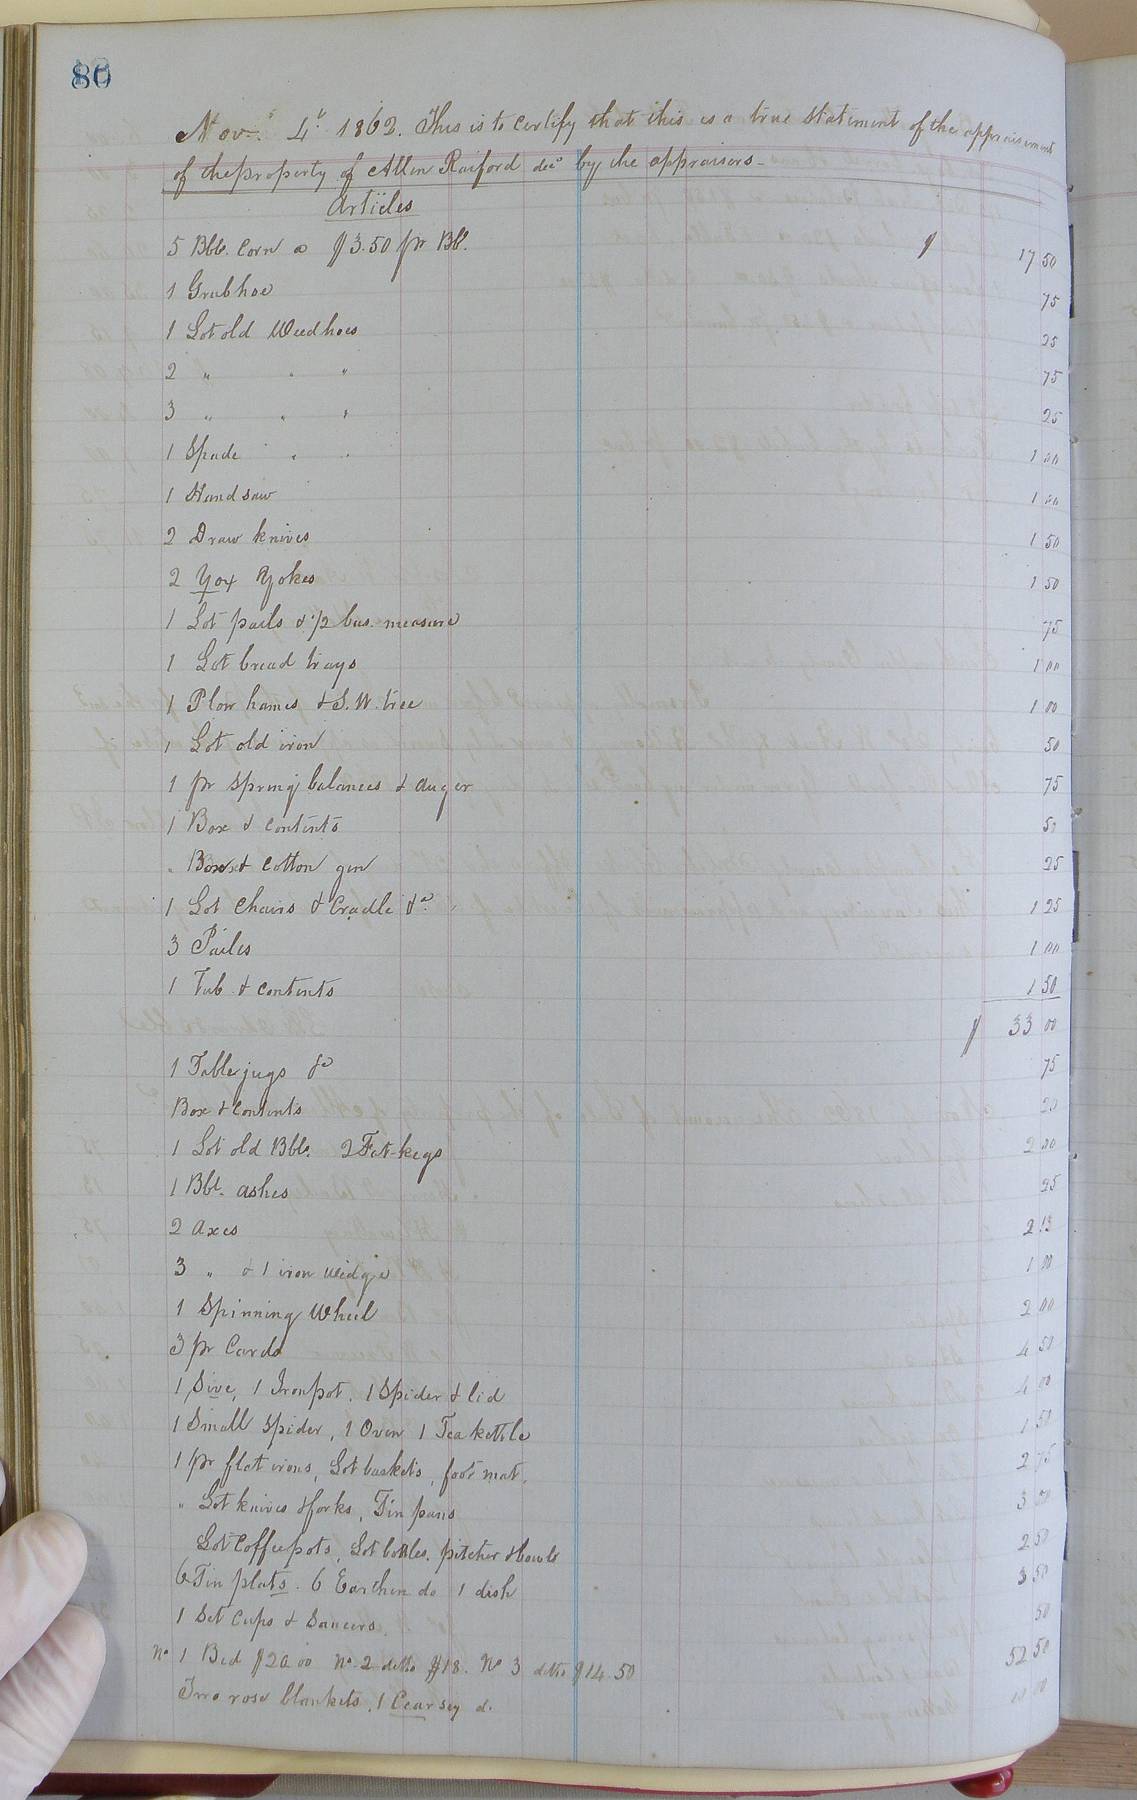 80
Nov. 4th 1862. This is to certify that this is a true statement of the appraisement
of the property of Allen Raiford decd by the appraisors -
Articles
5 Bbls. Corn @ $3.50 pr Bbl. $ 17 50
1 Grubhoe 75
1 Lot old Weedhoes 25
2 " " " 75
3 " " " 25
1 Spade " " 1 00
1 Hand saw 1 00
2 Draw knives 1 50
2 Yox Yokes 1 50
1 Lot pails & 1/2 bus. measure 75
1 Lot bread trays 1 00
1 Plow hames & S.W. tree 1 00
1 Lot old iron 50
1 pr Spring balances & auger 75
1 Box & contents 50
" Box & Cotton gin 25
1 Lot Chairs & Cradle &c 1 25
3 Pailes 1 00
1 Tub & contents 1 50
$ 33 00
1 Table jugs &c 75
Box & Contents 20
1 Lot old Bbls. 2 Fat-kegs 2 00
1 Bbl. ashes 25
2 Axes 2 13
3 " & 1 iron wedge 1 00
1 Spinning Wheel 2 00
3 pr Cards 4 50
1 Sive, 1 Iron pot, 1 Spider & lid 4 00
1 Small spider, 1 Oven 1 Tea kettle 1 50
1 pr flat irons, Lot baskets, foot mat. 2 75
" Lot knives & forks, Tin pans 3 00
Lot Coffeepots, Lot bottles, pitcher & bowls 2 50
6 Tin plats. 6 Earthen do 1 dish 3 50
1 Set Cups & Saucers 50
No 1 Bed $20 00 No 2 ditto $18. No 3 ditto $14.50 52 50
Two rose blankets, 1 Cearsey do 10 00